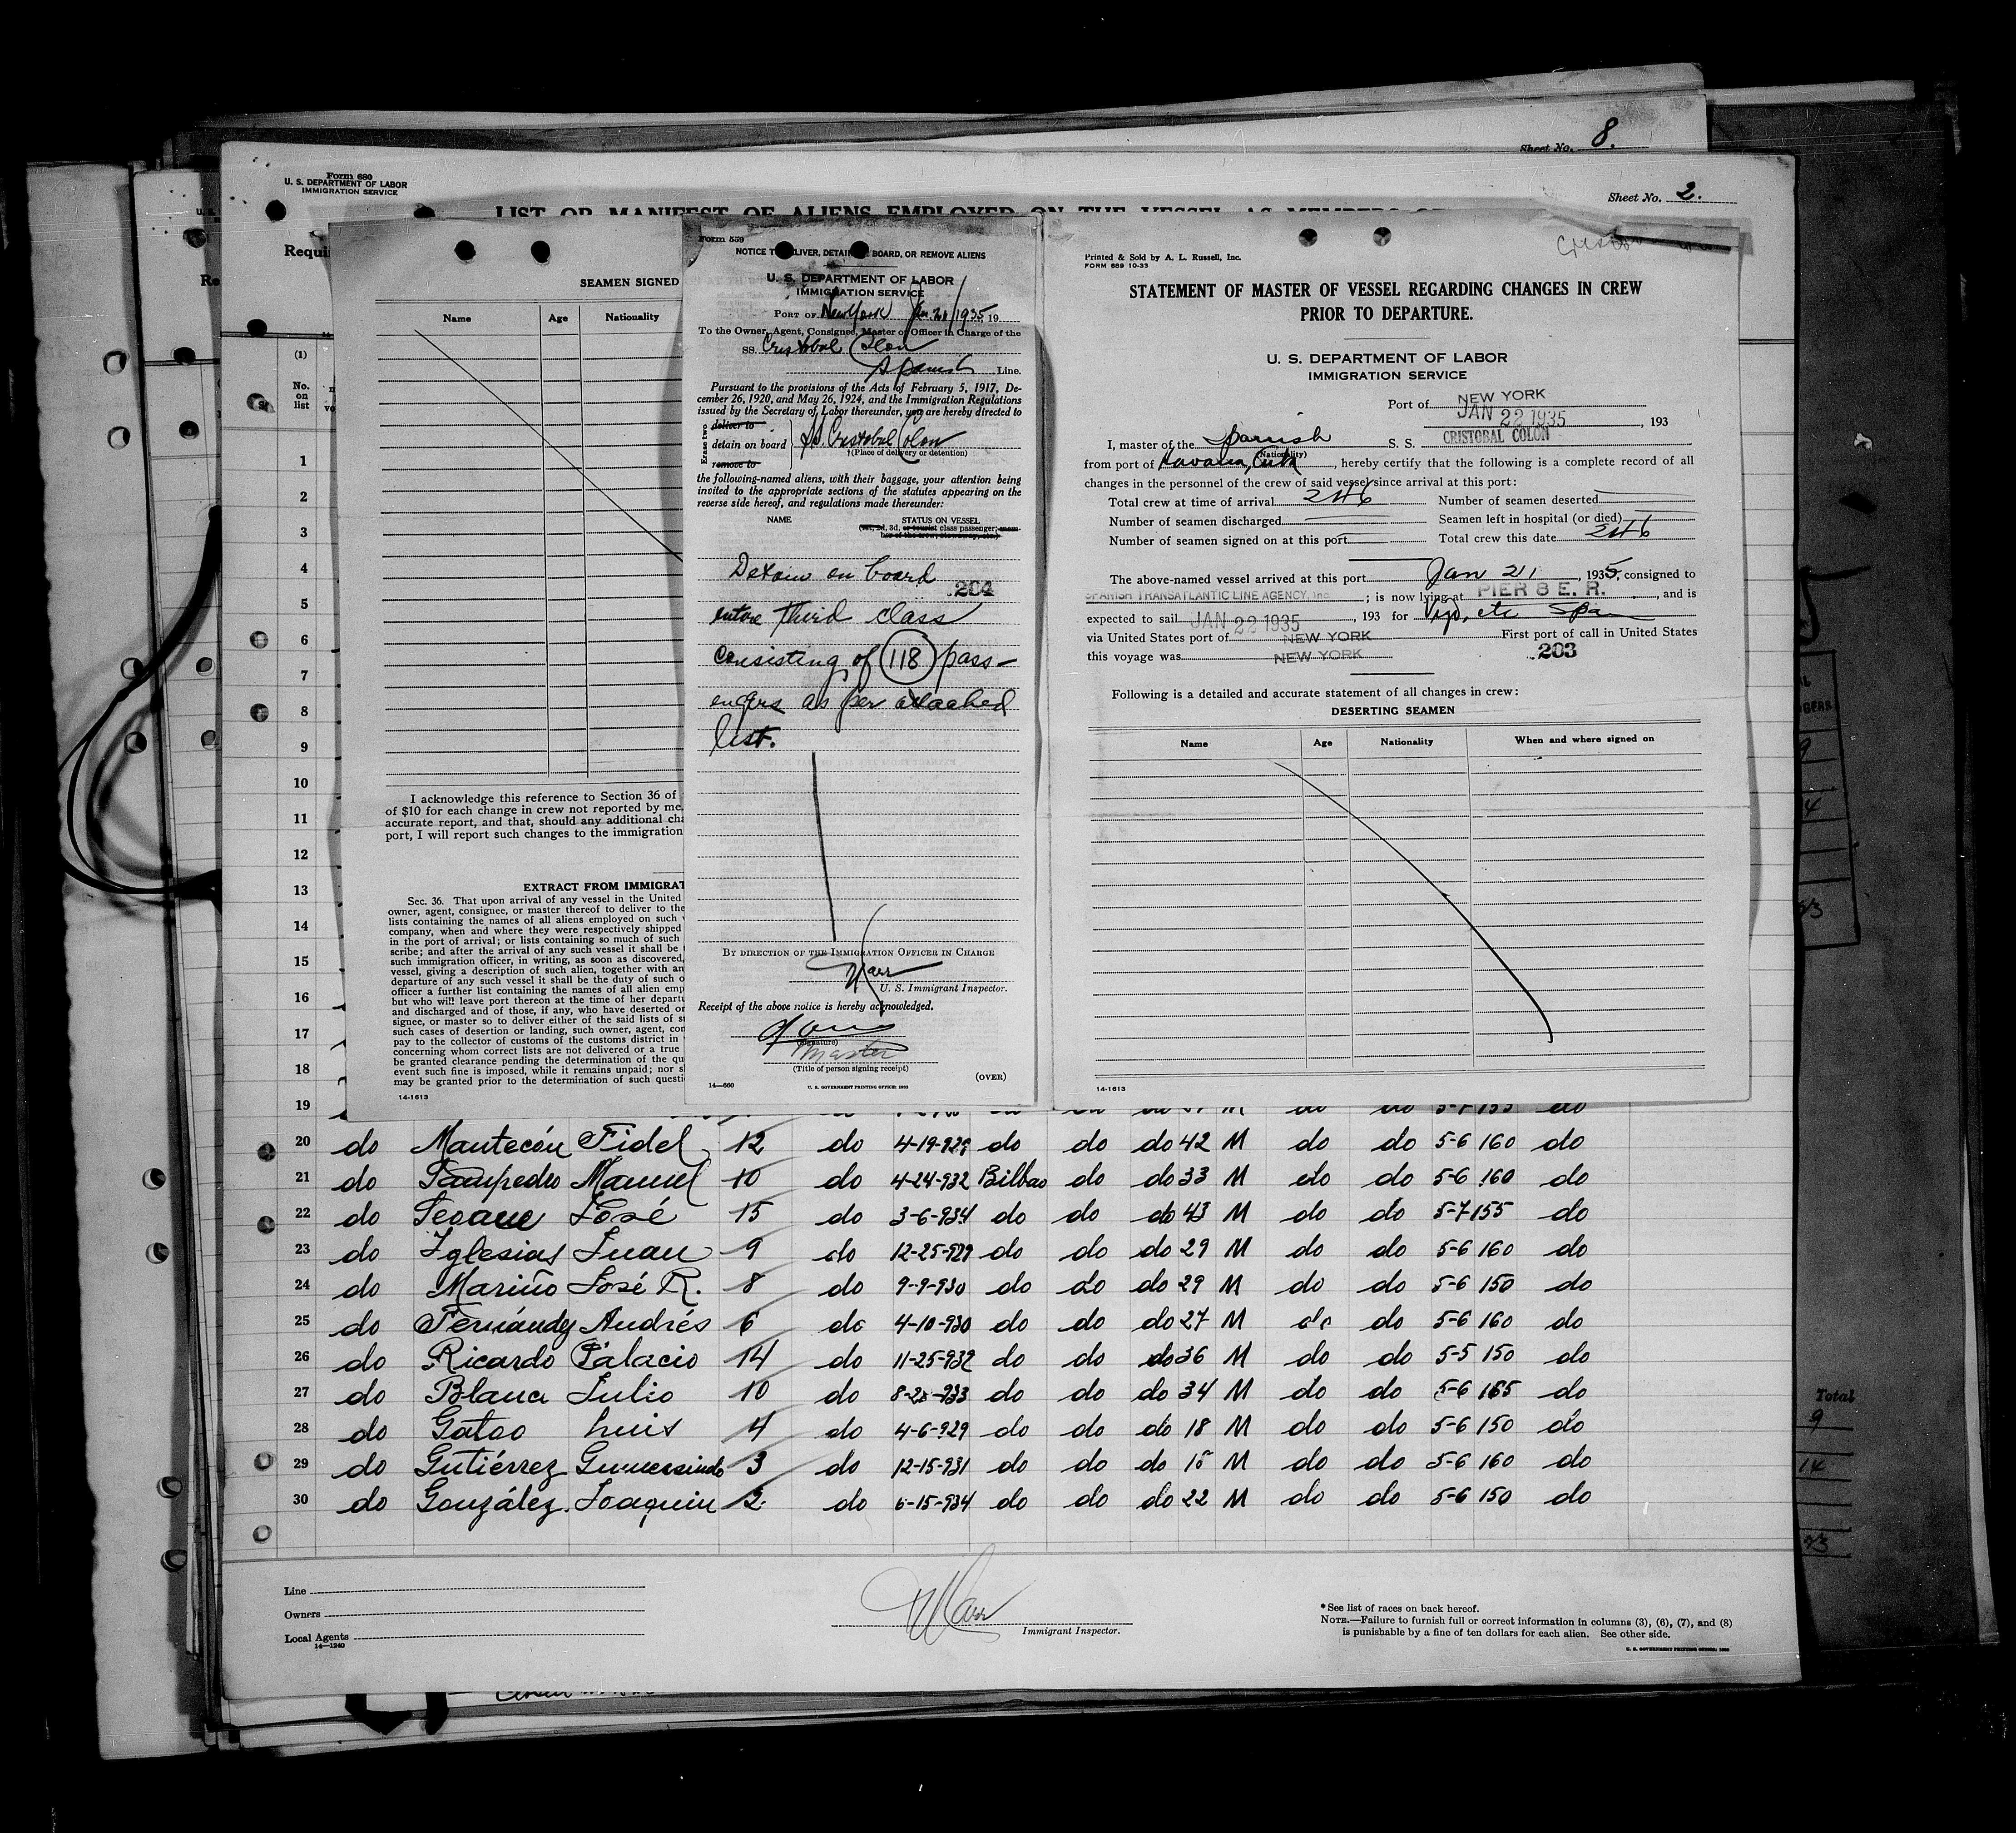 Sheet No. 8.
Form 680
U. S. DEPARTMENT OF LABOR
IMMIGRATION SERVICE
Sheet No. 2.
LIST OR MANIFEST OF ALIENS EMPLOYED ON THE VESSEL AS MEMBERS OF
Requi
(1)
No.
on
list
SEAMEN SIGNED
Name Age Nationality
I acknowledge this reference to Section 36 of
of $10 for each change in crew not reported by me.
accurate report, and that, should any additional cha
port, I will report such changes to the immigration
EXTRACT FROM IMMIGRAT
Sec. 36. That upon arrival of any vessel in the United
owner, agent, consignee, or master thereof to deliver to the
lists containing the names of all aliens employed on such
company, when and where they were respectively shipped
in the port of arrival; or lists containing so much of such
scribe; and after the arrival of any such vessel it shall be
such immigration officer, in writing, as soon as discovered,
vessel, giving a description of such alien, together with an
departure of any such vessel it shall be the duty of such o
officer a further list containing the names of all alien emp
but who will leave port thereon at the time of her departu
and discharged and of those, if any, who have deserted or
signee, or master so to deliver either of the said lists of s
such cases of desertion or landing, such owner, agent, con
pay to the collector of customs of the customs district in
concerning whom correct lists are not delivered or a true
be granted clearance pending the determination of the qu
event such fine is imposed, while it remains unpaid; nor s
may be granted prior to the determination of such questi
14-1613
Form 559
NOTICE T LIVER, DETAI BOARD, OR REMOVE ALIENS
U. S. DEPARTMENT OF LABOR
IMMIGRATION SERVICE
PORT OF New York Jan. 21/1935 19
To the Owner, Agent, Consignee, Master or Officer in Charge of the
SS. Cristobal Colon
Spanish Line.
Pursuant to the provisions of the Acts of February 5, 1917, De-
cember 26, 1920, and May 26, 1924, and the Immigration Regulations
issued by the Secretary of Labor thereunder, you are hereby directed to
Erase two
deliver to
detain on board SS. Cristobal Colon
†(Place of delivery or detention)
remove to
the following-named aliens, with their baggage, your attention being
invited to the appropriate sections of the statutes appearing on the
reverse side hereof, and regulations made thereunder:
NAME STATUS ON VESSEL
(1st, 2d, 3d, or tourist class passenger; mem-
ber of the crew, stowaway, etc.)
Detain on board
204
entire third class
consisting of 118 pass-
engers as per attached
list.
BY DIRECTION OF THE IMMIGRATION OFFICER IN CHARGE
Marr
U. S. Immigrant Inspector.
Receipt of the above notice is hereby acknowledged.
(Signature)
Master
(Title of person signing receipt)
(OVER)
14—660 U. S. GOVERNMENT PRINTING OFFICE: 1933
Printed & Sold by A. L. Russell, Inc.
FORM 689 10-33
STATEMENT OF MASTER OF VESSEL REGARDING CHANGES IN CREW
PRIOR TO DEPARTURE.
U. S. DEPARTMENT OF LABOR
IMMIGRATION SERVICE
Port of NEW YORK
JAN 22 1935, 193
I, master of the Spanish S. S. CRISTOBAL COLON
(Nationality)
from port of Havana, Cuba, hereby certify that the following is a complete record of all
changes in the personnel of the crew of said vessel since arrival at this port:
Total crew at time of arrival 246 Number of seamen deserted
Number of seamen discharged Seamen left in hospital (or died)
Number of seamen signed on at this port Total crew this date 246
The above-named vessel arrived at this port Jan 21, 1935, consigned to
SPANISH TRANSATLANTIC LINE AGENCY, Inc.; is now lying at PIER 8 E. R., and is
expected to sail JAN 22 1935, 193 for Vigo, etc Spa
via United States port of NEW YORK First port of call in United States
this voyage was NEW YORK 203
Following is a detailed and accurate statement of all changes in crew:
DESERTING SEAMEN
Name Age Nationality When and where signed on
14-1613
1
2
3
4
5
6
7
8
9
10
11
12
13
14
15
16
17
18
19
20 do Mantecón Fidel 12 do 4-19-929 do do do 42 M do do 5-6 160 do
21 do Sampedro Manuel 10 do 4-24-932 Bilbao do do 33 M do do 5-6 160 do
22 do Seoane José 15 do 3-6-934 do do do 43 M do do 5-7 155 do
23 do Iglesias Juan 9 do 12-25-929 do do do 29 M do do 5-6 160 do
24 do Mariño José R. 8 do 9-9-930 do do do 29 M do do 5-6 150 do
25 do Fernández Andrés 6 do 4-10-930 do do do 27 M do do 5-6 160 do
26 do Ricardo Palacio 14 do 11-25-932 do do do 36 M do do 5-5 150 do
27 do Blanca Julio 10 do 933 do do do 34 M do do 5-6 165 do
28 do Gatoo Luis 4 do 4-6-929 do do do 18 M do do 5-6 150 do
29 do Gutiérrez Gumersindo 3 do 12-15-931 do do do M do do 5-6 160 do
30 do González Joaquin 2 do 6-15-934 do do do 22 M do do 5-6 150 do
Total
9
14
23
Line
Owners
Local Agents
14—1240
Marr
Immigrant Inspector.
*See list of races on back hereof.
NOTE.—Failure to furnish full or correct information in columns (3), (6), (7), and (8)
is punishable by a fine of ten dollars for each alien. See other side.